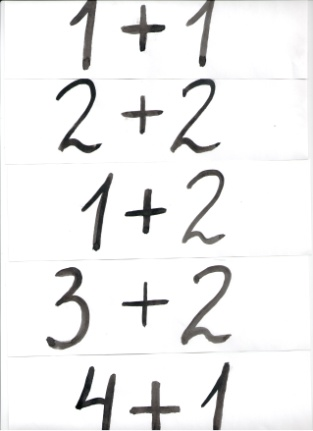 1 + 1
2 + 2
1 + 2
3 + 2
4 + 1